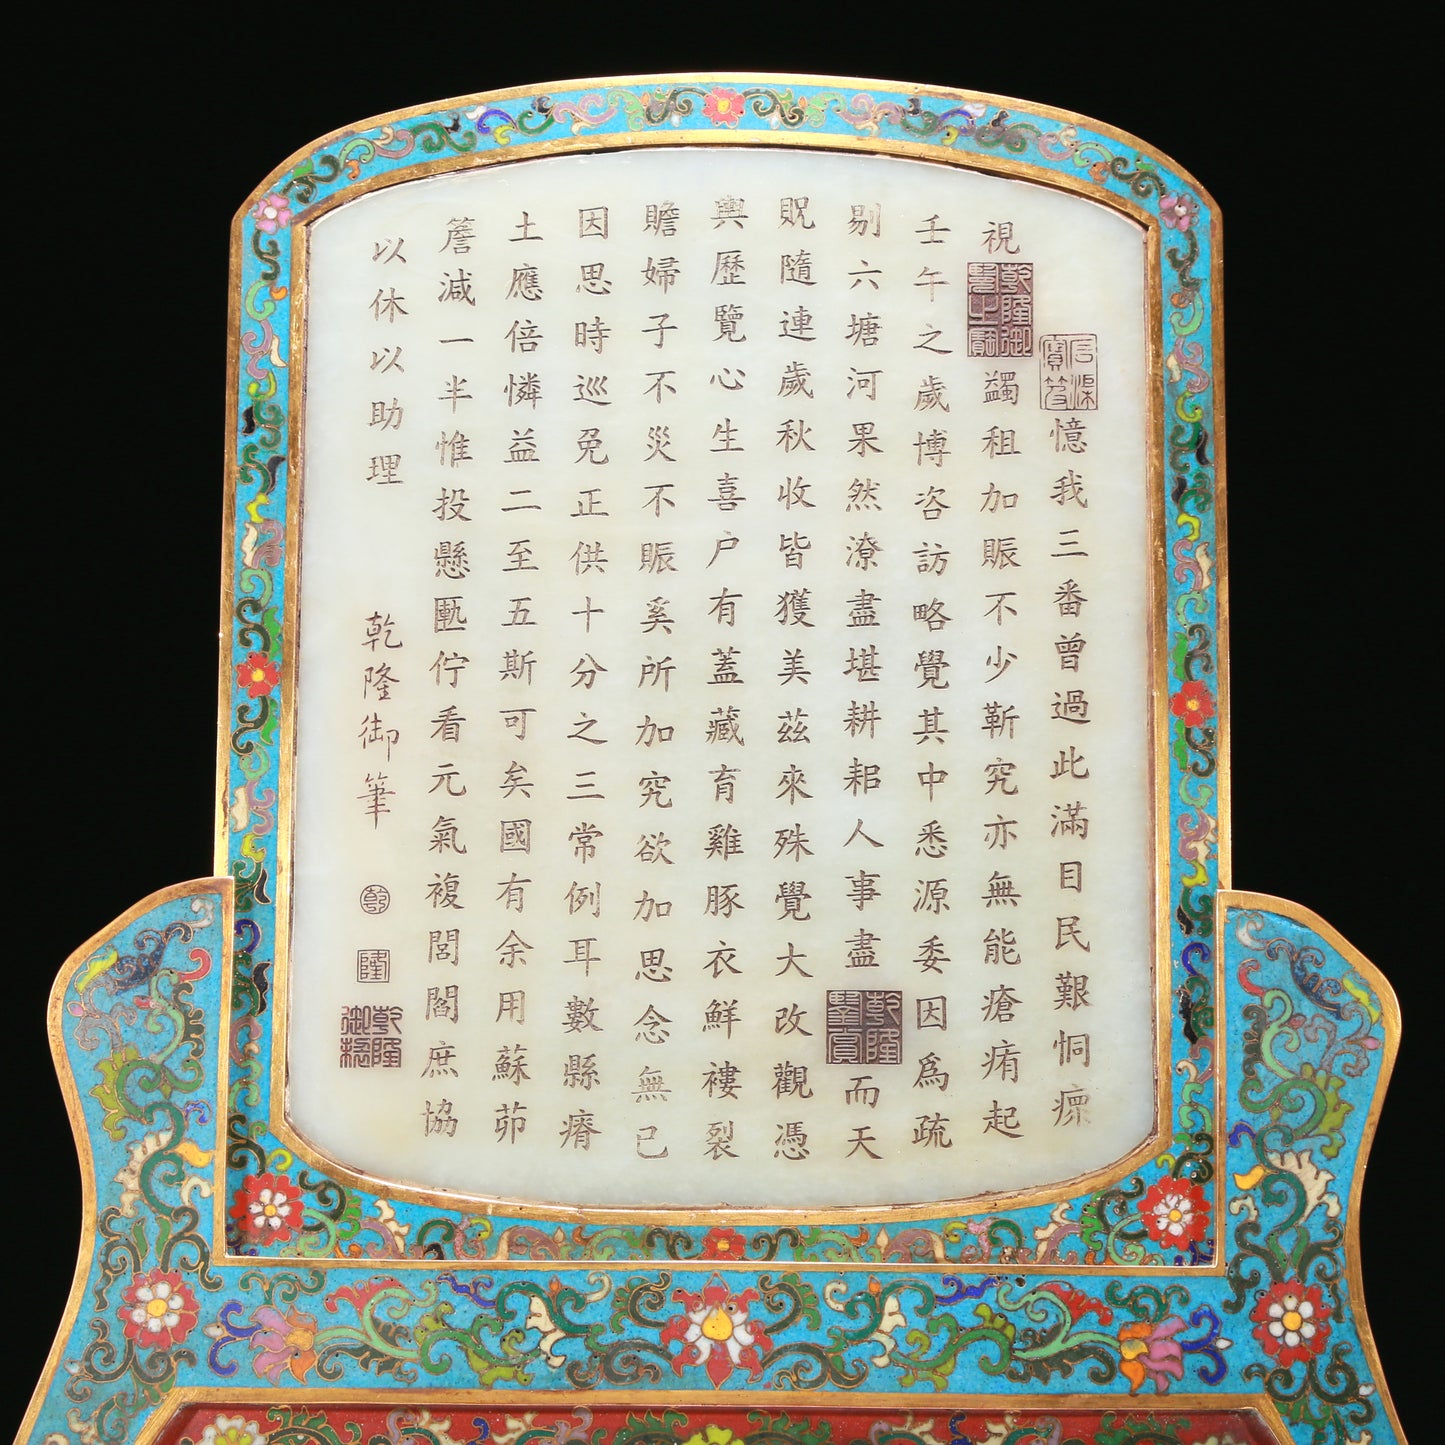 石渠寶笈
憶我三番曾過此滿目民艱恫瘝
視乾隆御覽之寶蠲租加賑不少靳究亦無能瘡痏起
壬午之歲博咨訪略覺其中悉源委因爲疏
剔六塘河果然潦盡堪耕耜人事盡乾隆鑒賞而天
貺隨連歲秋收皆獲美茲來殊覺大改觀憑
輿歷覽心生喜户有蓋藏育雞豚衣鮮褸裂
贍婦子不災不賑奚所加究欲加思念無已
因思時巡免正供十分之三常例耳數縣瘠
土應倍憐益二至五斯可矣國有余用蘇茆
簷減一半惟投懸匭佇看元氣複閭閻庶協
以休以助理
乾隆御筆
乾
隆